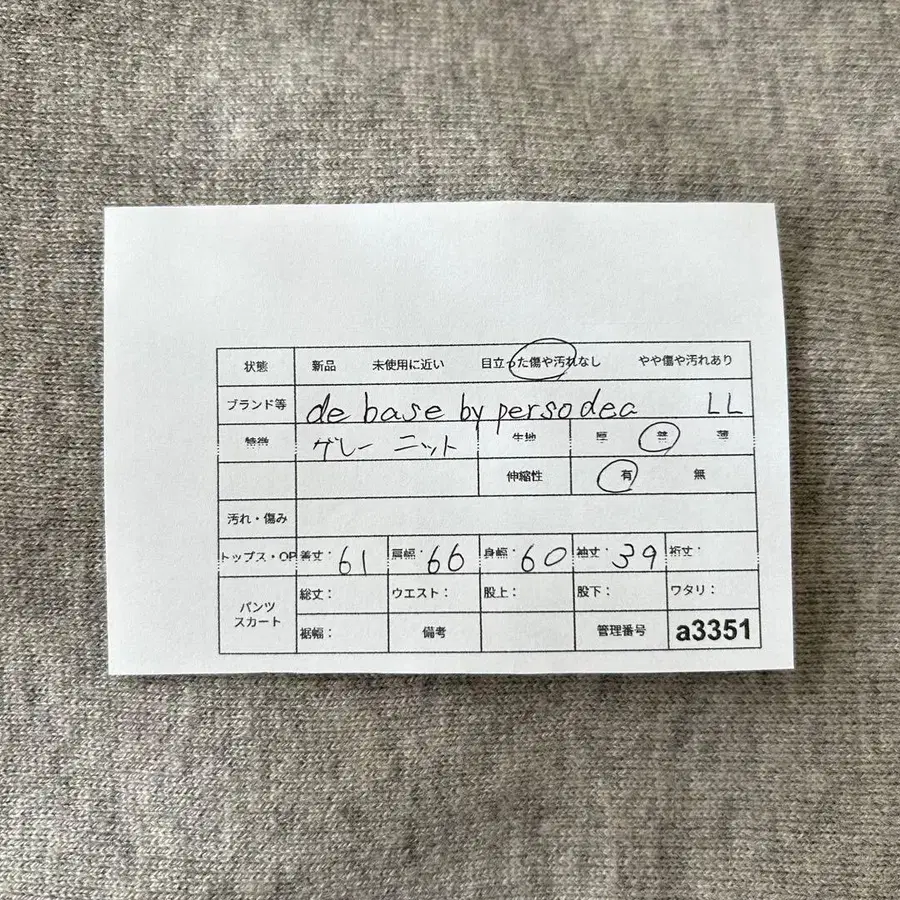 状態 新品 未使用に近い 目立った傷や汚れなし やや傷や汚れあり
ブランド等 de base by persodea LL
特徴 グレー ニット 生地 厚 普 薄
伸縮性 有 無
汚れ・傷み
トップス・OP 着丈: 61 肩幅: 66 身幅: 60 袖丈: 39 裄丈:
パンツ スカート 総丈: ウエスト: 股上: 股下: ワタリ:
裾幅: 備考 管理番号 a3351